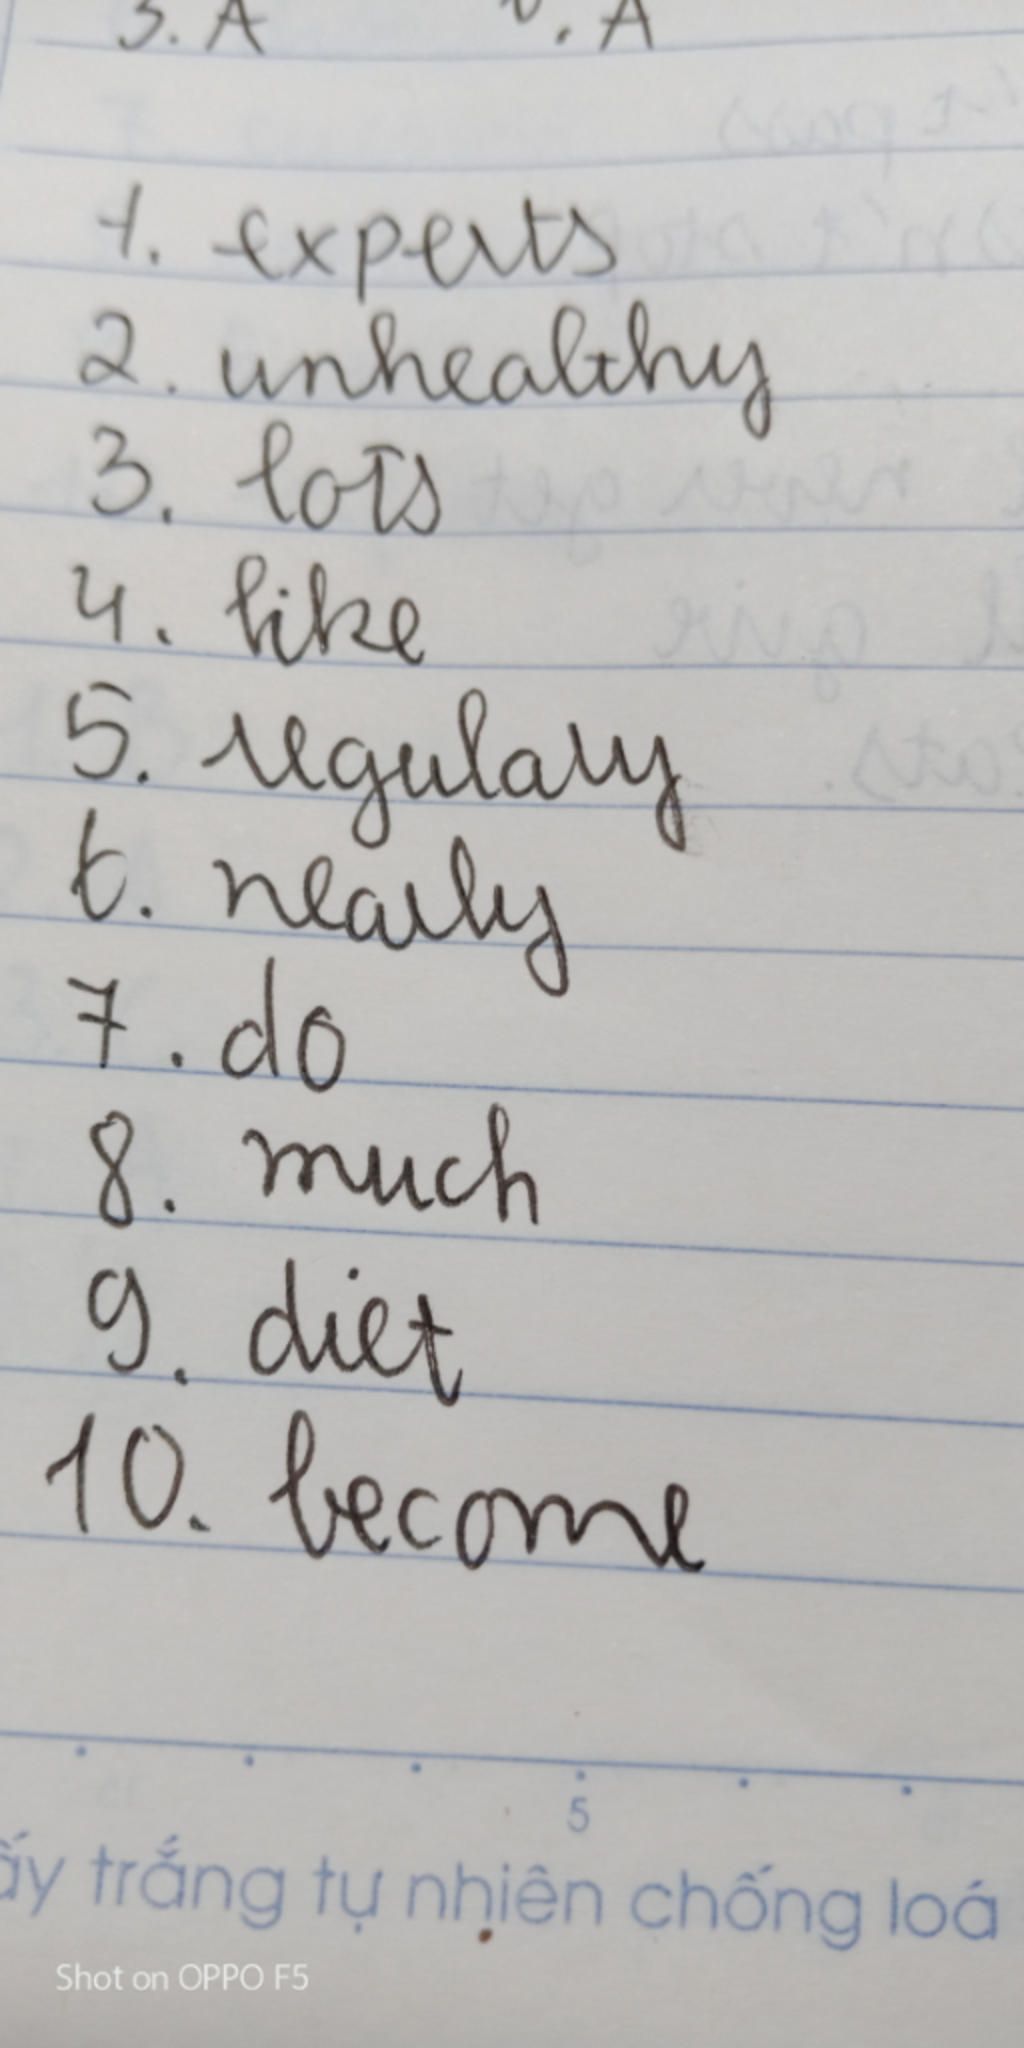 3. A . A
1. experts
2. unhealthy
3. lots
4. like
5. regulary
6. nearly
7. do
8. much
9. diet
10. become
5
ấy trắng tự nhiên chống loá
Shot on OPPO F5